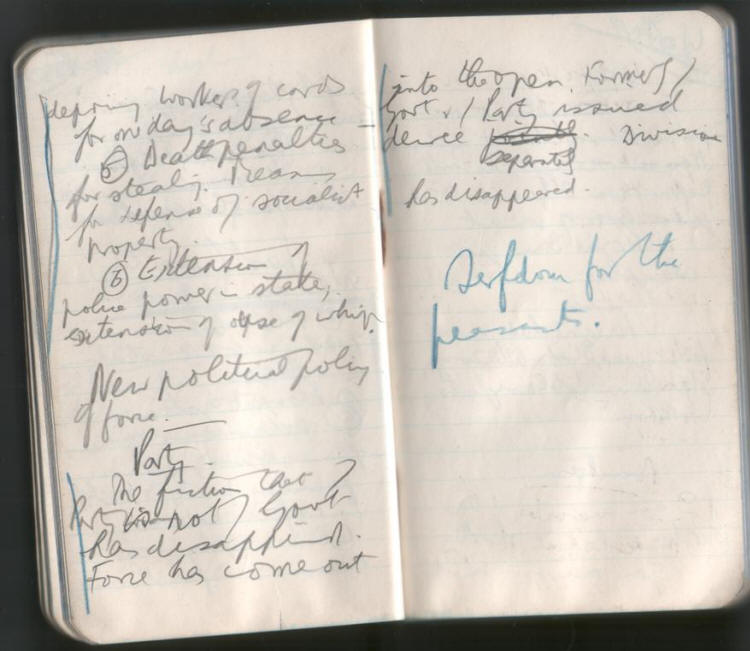 depriving workers of cards
for one day's absence –
⑤ Death penalties
for stealing. Means
for defense of socialist
property.
⑥ Extension of
police power in state,
extension of use of whip.
New political policy
of force.
Party.
The fiction that
Party is not Govt
has disappeared.
Force has come out
into the open. Formerly
Govt & Party issued
decree
separately. Division
has disappeared.
Serfdom for the
peasants.